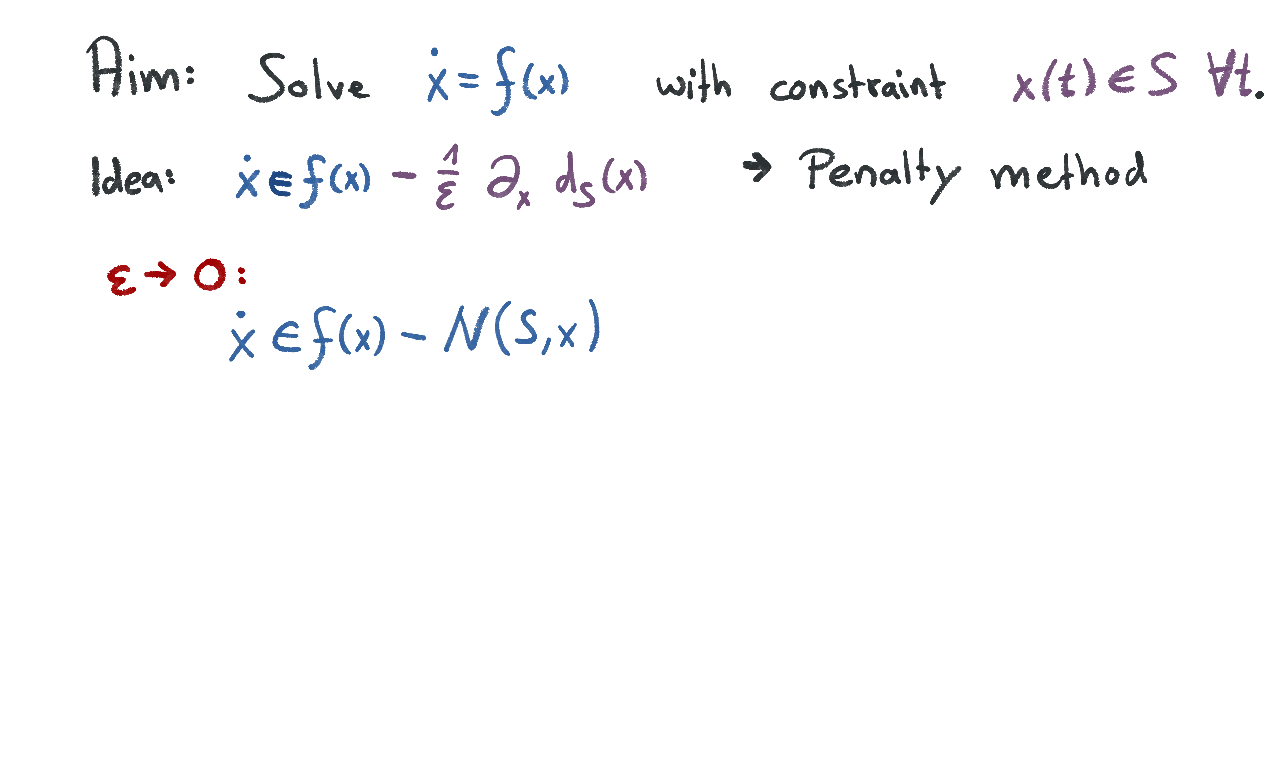 Aim: Solve ẋ = f(x) with constraint x(t) ∈ S ∀t.
Idea: ẋ ∈ f(x) - 1/ε ∂ₓ d_S(x) → Penalty method
ε → 0:
ẋ ∈ f(x) - N(S,x)